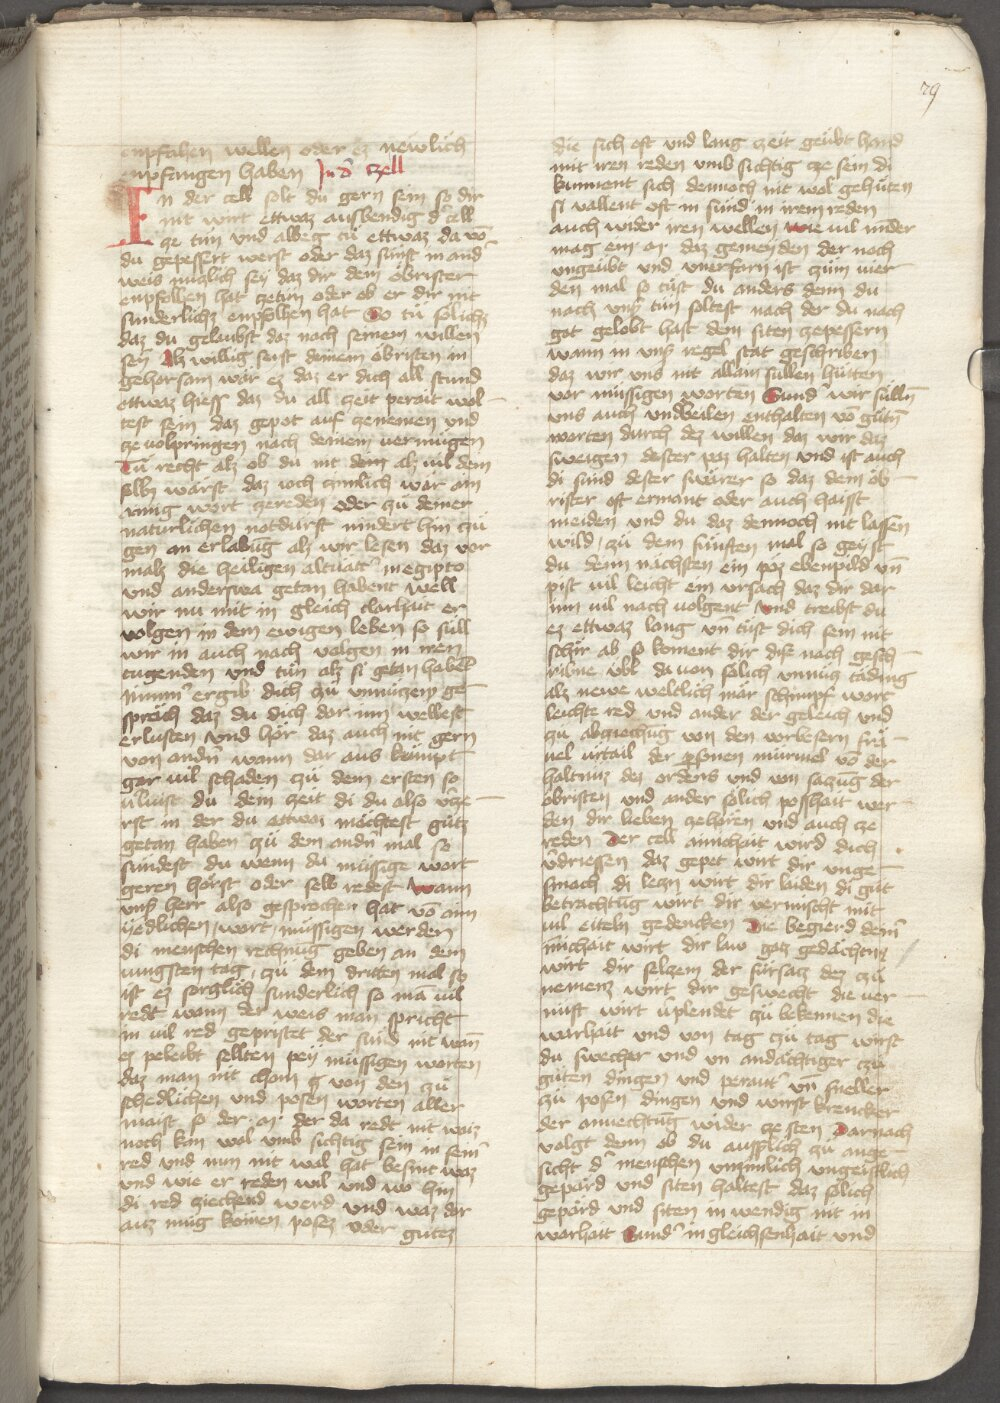 79
empfahen wellen oder ez newlich
enpfangen haben In d̄ zell
In der cell solt du gern sein so dir
nit wirt ettwaz auswendig d̄ cell
ze tun vnd albeg tu ettwaz da vō
du gepessert werst oder daz sunst in and̄
weis nuczlich sey daz dir dein öbrister
enpfolhen hat zetun oder ob er dir nit
sunderlichz enpfolhen hat So tu sölichz
daz du gelaubst daz nach seinem willen
sey Als willig seyst deinem obristen in
gehorsam wär ez daz er dich all stund
ettwaz hiess daz du all zeit perait wol-
test sein daz gepot auf zenemen vnd
ze volpringen nach deinem vermugen
Tu recht alz ob du nit dein alz vil dem
selbz wärst daz ioch zimlich war ain
ainig wort zereden oder zu deiner
naturlichen notdurft nindert hin zu
gen an erlabūg alz wir lesen daz vor
malz die heiligen altuätt̄ in egipto
vnd anderswa getan habent Well
wir nu mit in gleich clarhait er
volgen in dem ewigen leben so süll
wir in auch nach volgen in iren
tugenden vnd tun alz si getan habēt
Nimm̄ ergib dich zu vnnüczem ge-
spräch daz du dich dar inn wellest
erlusten vnd hör daz auch nit gern
von andn̄ wann dar aus kumpt
gar vil schaden zu dem ersten so
vliust du dein zeit di du also v̄ze-
rst in der du ettwaz möchtest gutz
getan haben zu dem andn̄ mal so
sundest du wenn du müssige wort
geren hörst oder selb redest Wann
vnser herr also gesprochen hat vō aim
yedlichen wort müssigen werden
di menschen rechnūg geben an dem
iungsten tag, zu dem dritten mal so
ist ez sorglich sunderlich so mā vil
redt wann der weis man spricht
in vil red gepristet der sund nit wan̄
ez peleibt sellten pey müssigen worten
daz man nit chom von den zu
schedlichen vnd posen worten aller
maist so der da redt nit waiz
noch kan wol vmb sichtig sein in sein̄
red vnd nun nit wol hat besint waz
vnd wie er reden wil vnd wo hin
di red ziechend werd vnd waz dar
auz mug kömen posez oder gutez
die sich oft vnd lang zeit geübt hand
mit iren reden vmb sichtig cze sein di
kumment sich dennoch nit wol gehüten
si vallent oft in sünd in irem reden
auch wider iren wellen wie vil mīder
mag ein daz gemeyden der noch
vngeübt vnd vnerfarn ist zum vier
den mal so tüst du anders denn du
nach vnser tun soltest nach der du nach
got gelobt hast dein siten zepessern
wann in vnser regel stat geschriben
daz wir vns nit allain süllen hüten
vor müssigen worten Sund̄ wir sülln̄
vns auch vndbeilen enthalten vō gutn̄
worten durch dez willen daz wir daz
sweigen dester paz halten vnd ist auch
di sünd dester swärer so daz dein öb-
rister oft ermant oder auch haisst
meiden vnd du daz dennoch nit lassen
wild / zu dem fünften mal so geyst
du denn nächsten ein poz ebenpild vn̄
pist vil leicht ein vrsach daz dir dar
inn vil nach volgent Vnd treibst du
ez ettwaz lang vn̄ tüst dich sein nit
schir ab so koment dir dik nach gesch-
ribne übl da von sölich vnnüz täding
alz newe weltlich mär schimpf wort
leichte red vnd ander der geleich vnd
zu abziechūg von den vorbesern frä-
uel vrtail der personen murmel vō der
haltnuz dez ordens vnd von sazūg der
öbristen vnd ander sölich poshait wer-
den dir lieben zehören vnd auch ze
reden Der cell ainichait wird dich
v̄driessen daz gepet wirt dir vnge-
smach di leczn wirt dir laiden di gut
betrachtūg wirt dir vermischt mit
vil eiteln gedencken Die begierd dein̄
inichait wirt dir law gotz gedächtn
wirt dir selzem der fürsatz dez zu
nemenz wirt dir geswecht die ver-
nuft wirt v̄plendet zu bekennen die
warhait vnd von tag zu tag wirst
du swecher vnd vn andächtiger zu
guten dingen vnd perait vn̄ sneller
zu posen dingen vnd wirst krencker
der anuechtūg wider ze sten Darnach
volgt denn ob du auswendig zu ange-
sicht d̄ menschen vnzimlich vngeistlich
gepärd vnd siten haltest daz sölich
gepärd vnd siten in wendig nit in
warhait Sund̄ in gleichsenhait vnd